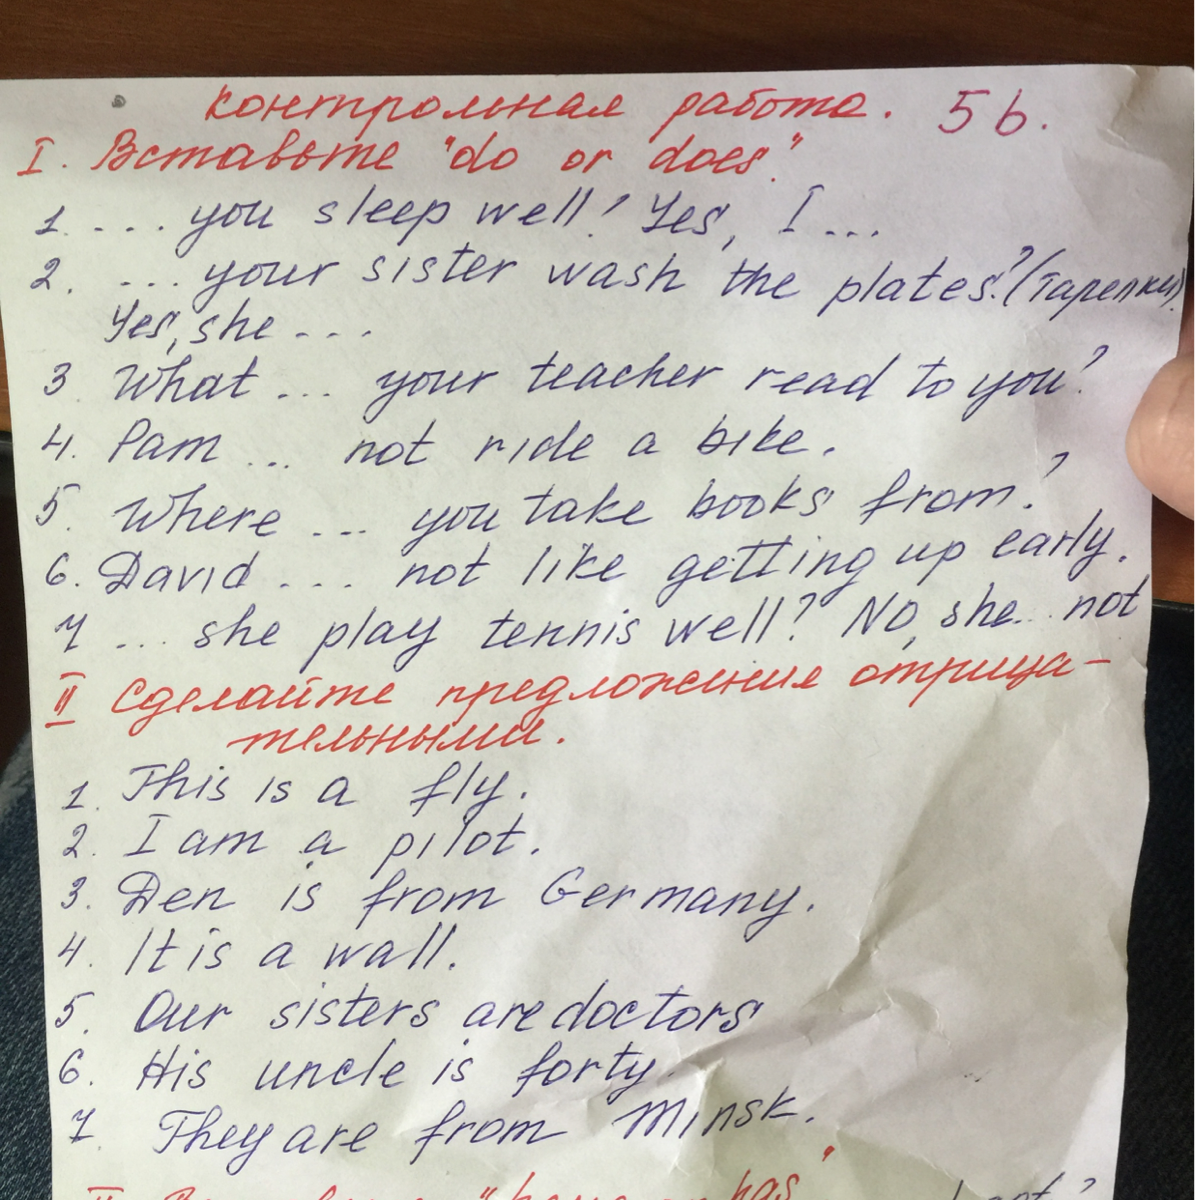 контрольная работа. 5б.
I. Вставьте "do or does."
1. .... you sleep well? Yes, I ...
2. ... your sister wash the plates? (тарелки)
Yes, she ...
3 What ... your teacher read to you?
4. Pam ... not ride a bike.
5. Where ... you take books from?
6. David ... not like getting up early.
7 ... she play tennis well? No, she... not
II Сделайте предложения отрица-
тельными.
1. This is a fly.
2. I am a pilot.
3. Den is from Germany.
4. It is a wall.
5. Our sisters are doctors
6. His uncle is forty.
7. They are from Minsk.